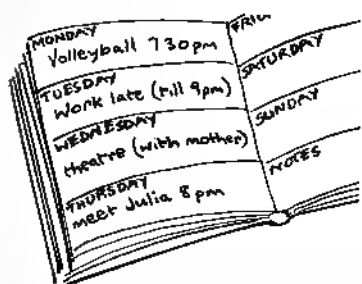 MONDAY
Volleyball 7 30pm
TUESDAY
Work late (till 9pm)
WEDNESDAY
theatre (with mother)
THURSDAY
meet Julia 8 pm
SATURDAY
SUNDAY
NOTES